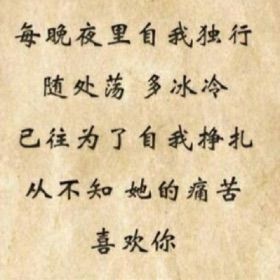 每晚夜里自我独行
随处荡 多冰冷
已往为了自我挣扎
从不知 她的痛苦
喜欢你